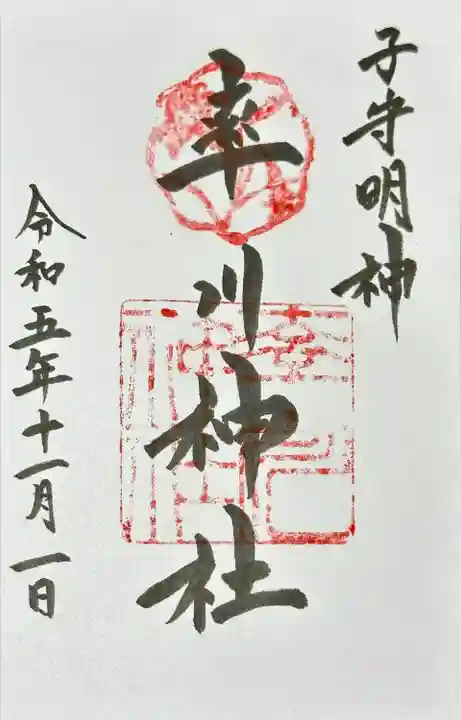 子守明神
率川神社
令和五年十一月一日